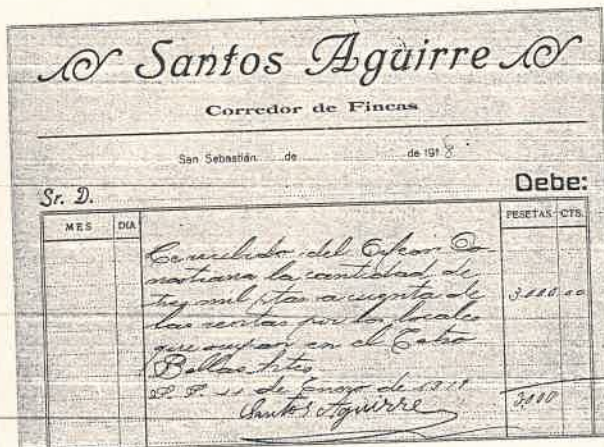 Santos Aguirre
Corredor de Fincas
San Sebastián de de 1918
Sr. D. Debe:
MES DIA PESETAS CTS.
He recibido del Orfeon Do
nostiarra la cantidad de
tres mil ptas a cuenta de 3.000 00
las rentas por los locales
que ocupan en el Teatro
Bellas Artes
S. S. 11 de Enero de 1918
Santos Aguirre 3,000